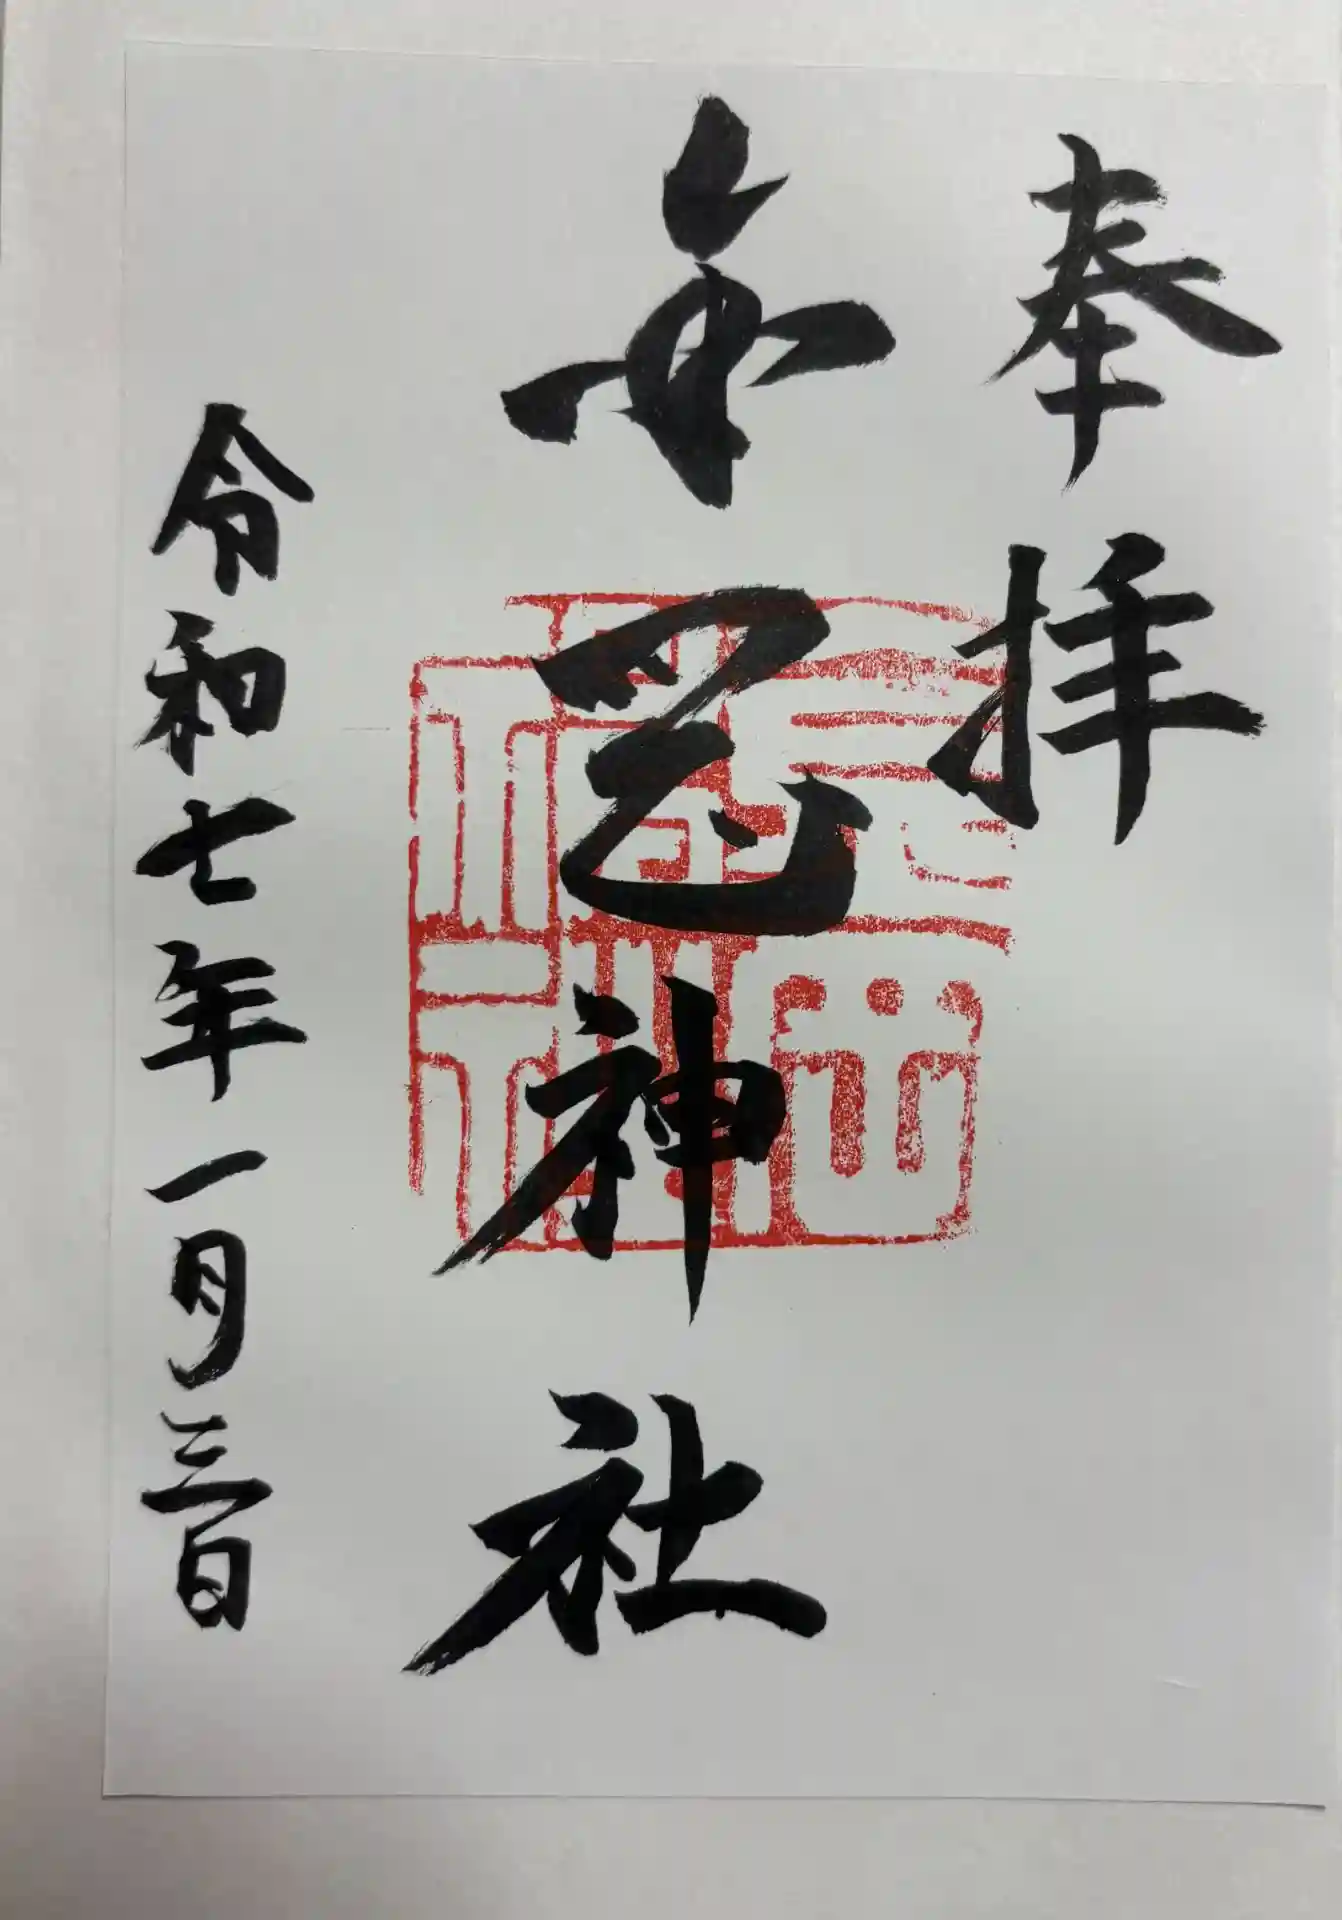 奉拝
安神社
令和七年一月三日